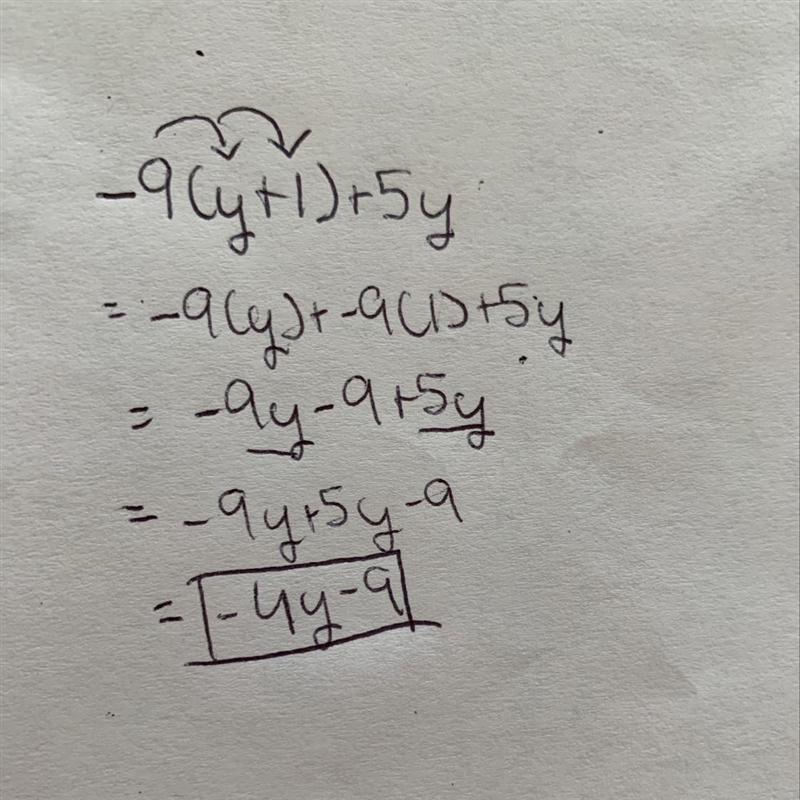 -9(y+1)+5y
= -9(y)+-9(1)+5y
= -9y-9+5y
= -9y+5y-9
= -4y-9